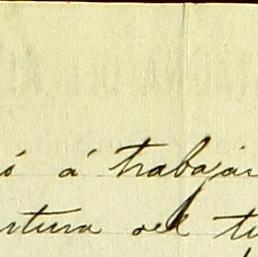 ó á trabajar
rtura del tu